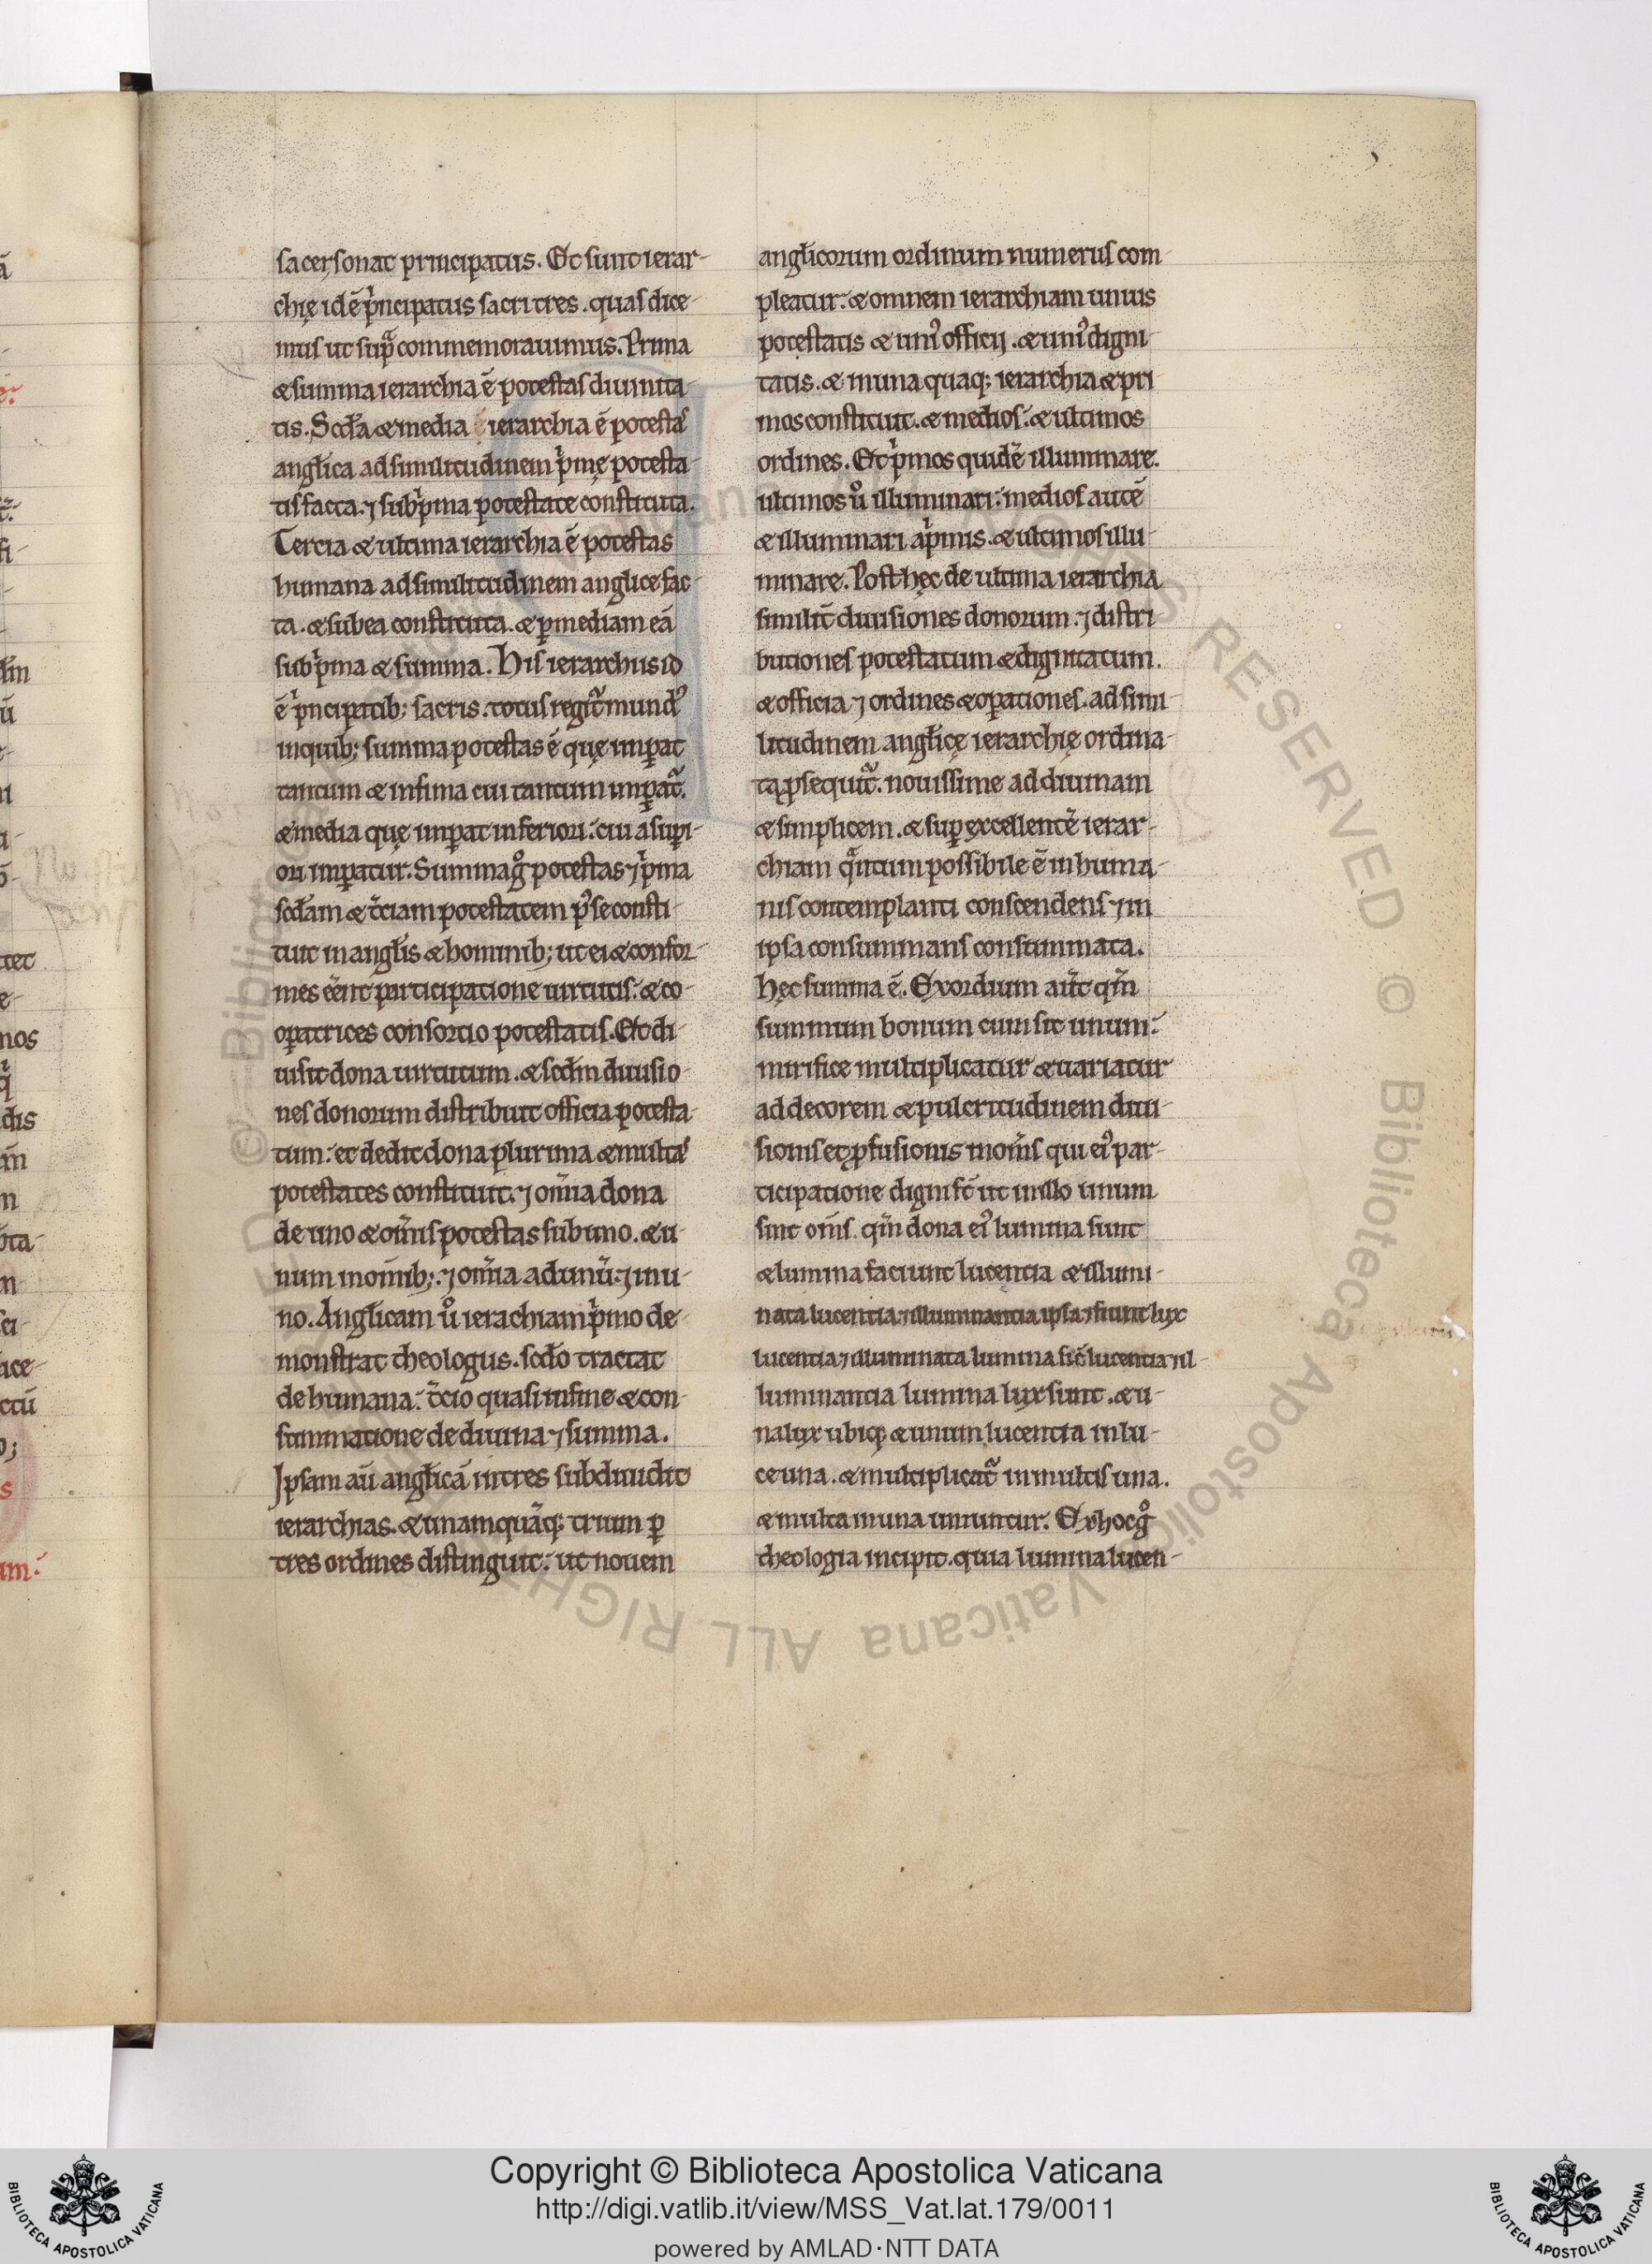 sacer sonat principatus. Et sunt ierar-
chię id ē p̍ncipatus sacri tres. quas dice-
mus ut sup̃ commemorauimus. Prima
& summa ierarchia ē potestas diuinita-
tis. Scd̄a & media ierarchia ē potestas
angl̄ica ad similitudinem p̍mę potesta-
tis facta. ⁊ sub p̍ma potestate constituta.
Tercia & ultima ierarchia ē potestas
humana ad similitudinem anglice fac-
ta. & sub ea constituta. & ꝑ mediam eā
sub p̍ma & summa. His ierarchiis id
ē p̍ncipatib; sacris. totus regit᷑ mund᾽
in quib; summa potestas ē quę imꝑat
tantum & infima cui tantum imꝑat᷑.
& media quę imꝑat inferiori: cui a suꝑi-
ori imꝑatur. Summa gͦ potestas ⁊ p̍ma
scd̄am & t̄ciam potestatem p᾽ se consti-
tuit in angl̄is & hominib; ut ei & confor-
mes eēnt participatione uirtutis: & co-
oꝑatrices consortio potestatis. Et di-
uisit dona uirtutum. & scd̄m diuisio-
nes donorum distribuit officia potesta-
tum: et dedit dona plurima & multas
potestates constituit. ⁊ om̄ia dona
de uno & om̄is potestas sub uno. & u-
num in om̄ib;. ⁊ om̄ia ad unū. ⁊ in u-
no. Angl̄icam uͦ ierachiam p̍mo de-
monstrat theologus. scd̄o tractat
de humana: t̄cio quasi in fine & con-
summatione de diuina ⁊ summa.
Ipsam aū angl̄icā in tres subdiuidit
ierarchias. & unam quāq; trium ꝑ
tres ordines distinguit: ut nouem
angl̄icorum ordinum numerus com-
pleatur: & omnem ierarchiam unius
potestatis & uni᾽ officij. & uni᾽ digni-
tatis. & in una quaq; ierarchia & pri-
mos constituit. & medios: & ultimos
ordines. Et p̍mos quidē illuminare.
ultimos uͦ illuminari: medios autē
& illuminari a p̍mis. & ultimos illu-
minare. Post hęc de ultima ierarchia
similit̄ diuisiones donorum. ⁊ distri-
butiones potestatum & dignitatum.
& officia ⁊ ordines & oꝑationes. ad simi-
litudinem angl̄icę ierarchię ordina-
ta ꝓsequit᷑. nouissime ad diuinam
& simplicem. & suꝑ excellentē ierar-
chiam qᷓntum possibile ē in huma-
nis contemplanti conscendens ⁊ in
ipsa consummans consummata.
hęc summa ē. Exordium aut̄ qm̄
summum bonum cum sit unum:
mirifice multiplicatur & uariatur
ad decorem & pulcritudinem diui-
sionis et ꝓfusionis in om̄s qui ei᾽ par-
ticipatione digni st̄ ut in illo unum
sint om̄s. qm̄ dona ei᾽ lumina sunt
& lumina faciunt lucentia & illumi-
nata lucentia ⁊ illuminantia ipsa ⁊ fiunt lux
lucentia ⁊ illuminata lumina sic̄ lucentia ⁊ il-
luminantia lumina lux sunt. & u-
na lux ubiq; & unum lucentia in lu-
ce una. & multiplicat᷑ in multis una.
& multa in una uniuntur. Ex hoc gͦ
theologia incipit. quia lumina lucen-
Copyright © Biblioteca Apostolica Vaticana
http://digi.vatlib.it/view/MSS_Vat.lat.179/0011
powered by AMLAD·NTT DATA